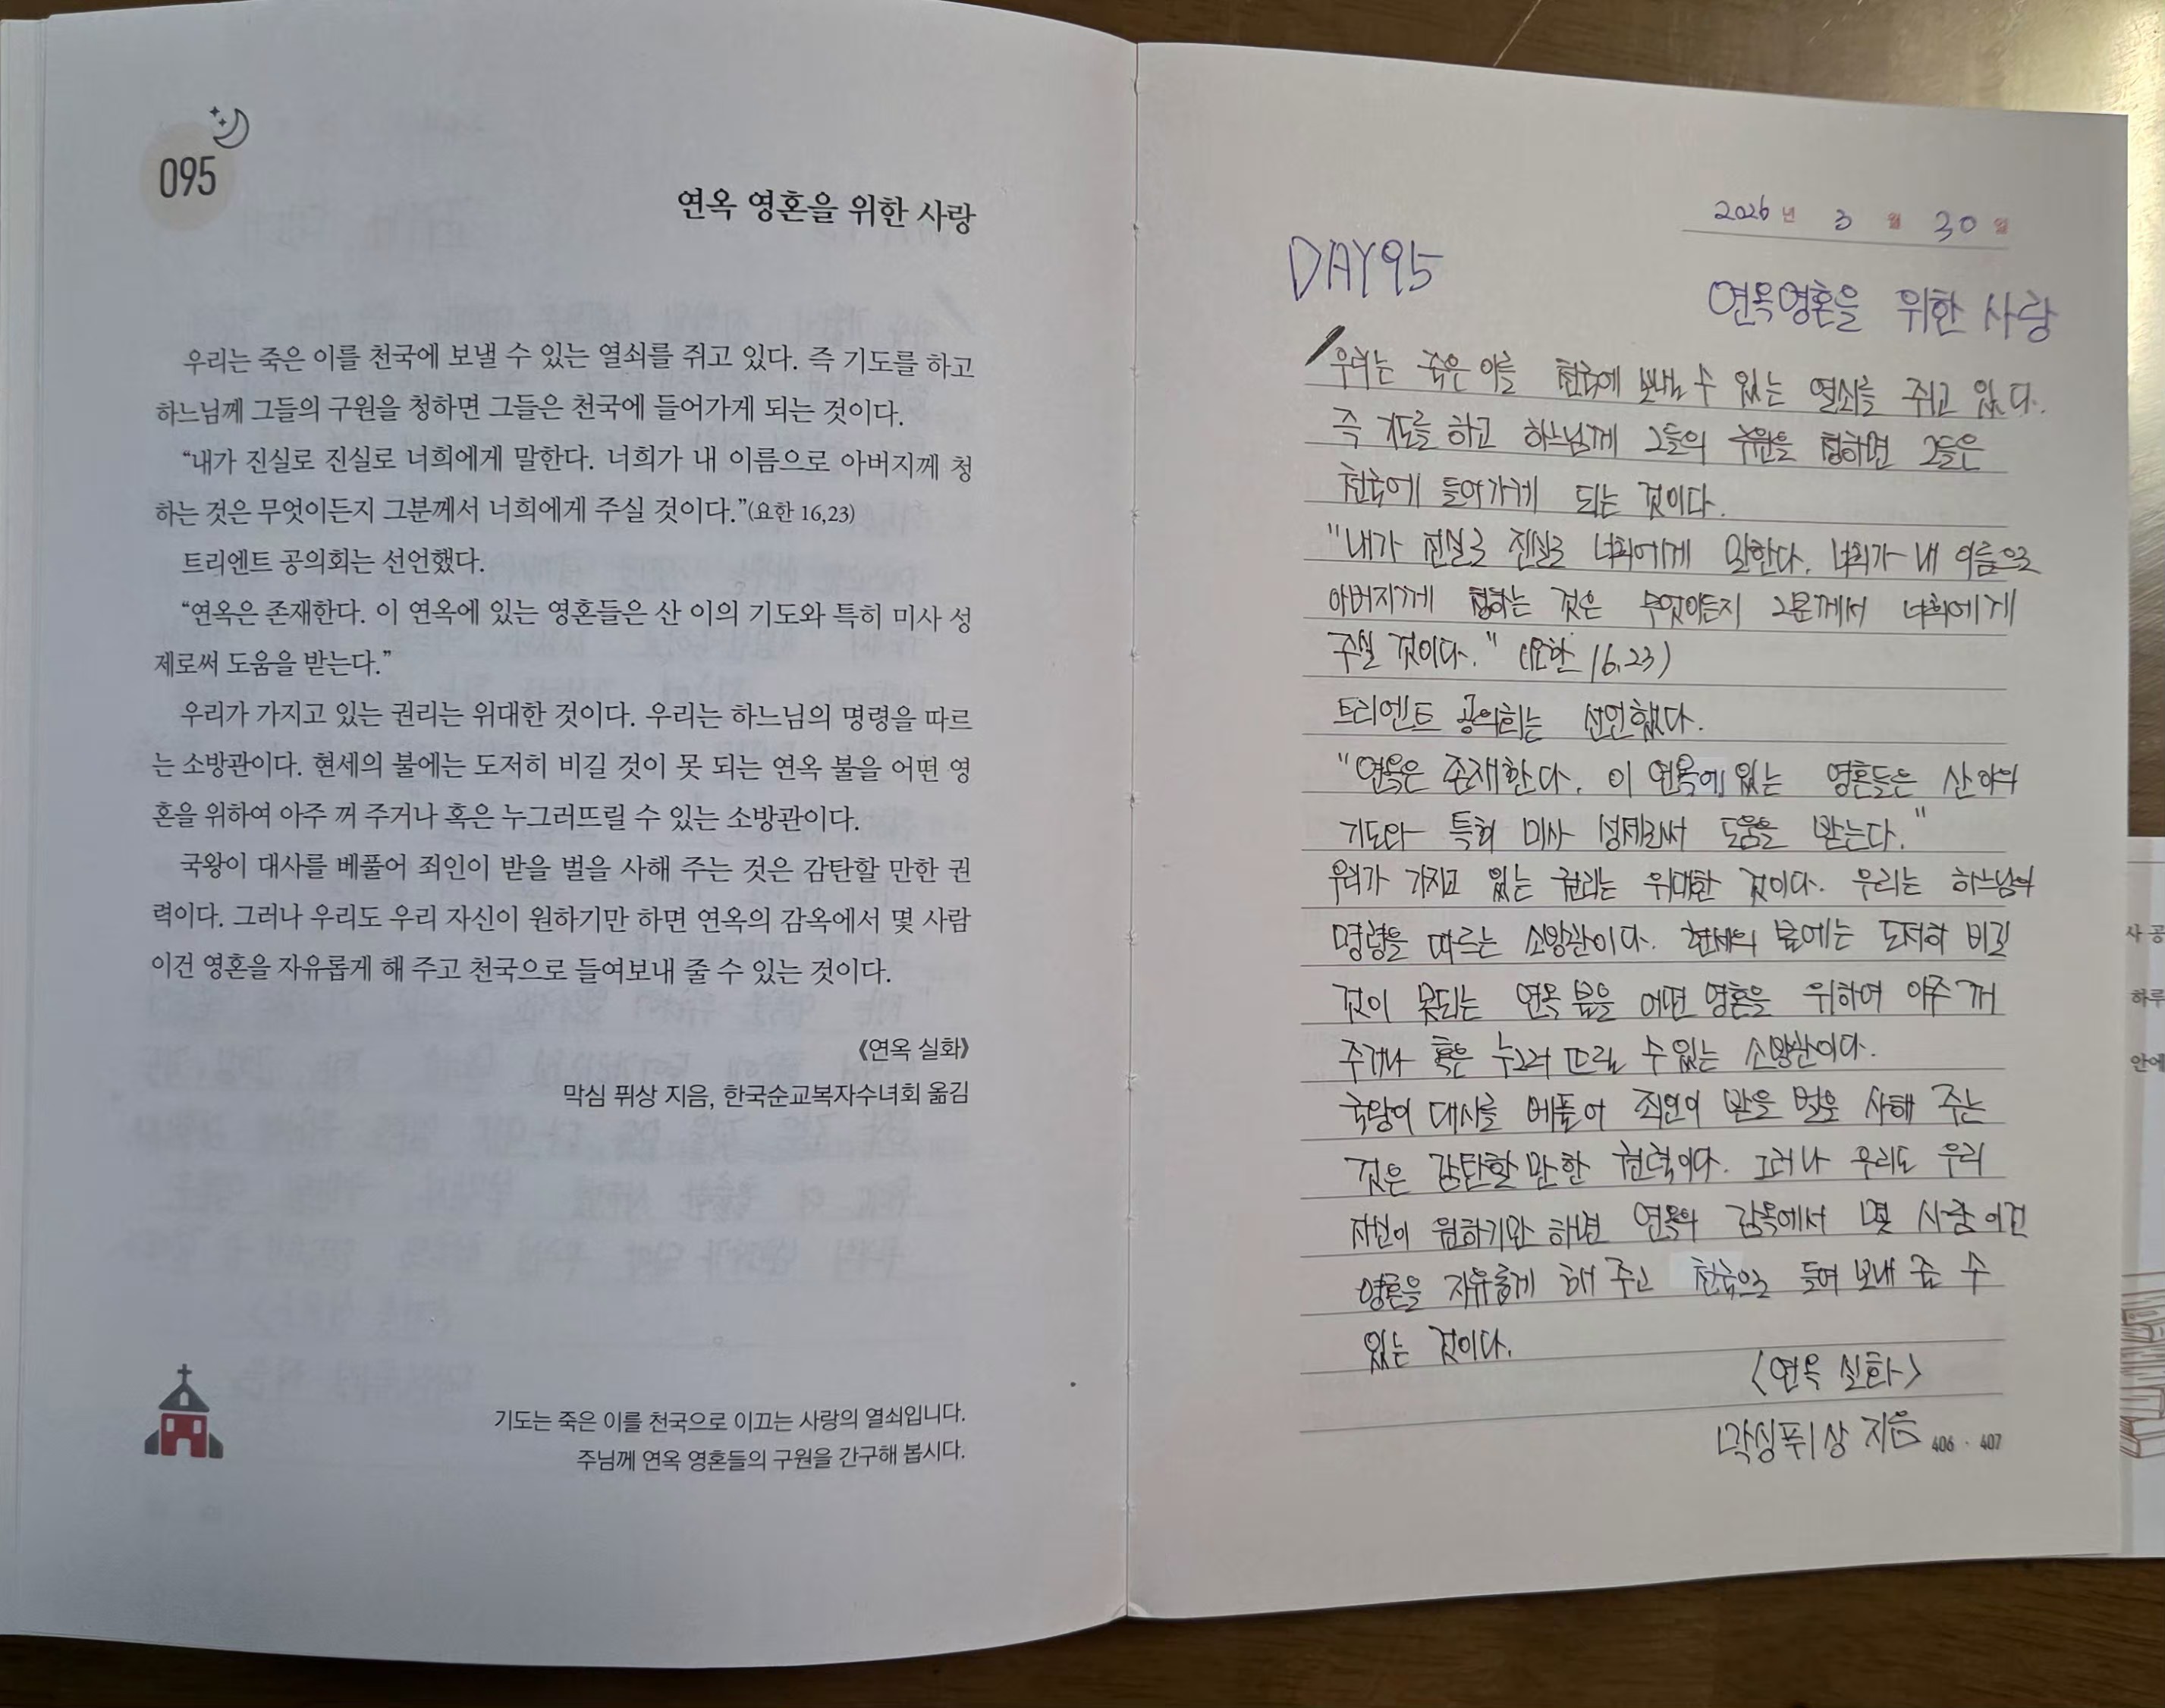 095
연옥 영혼을 위한 사랑
우리는 죽은 이를 천국에 보낼 수 있는 열쇠를 쥐고 있다. 즉 기도를 하고
하느님께 그들의 구원을 청하면 그들은 천국에 들어가게 되는 것이다.
“내가 진실로 진실로 너희에게 말한다. 너희가 내 이름으로 아버지께 청
하는 것은 무엇이든지 그분께서 너희에게 주실 것이다.”(요한 16,23)
트리엔트 공의회는 선언했다.
“연옥은 존재한다. 이 연옥에 있는 영혼들은 산 이의 기도와 특히 미사 성
제로써 도움을 받는다.”
우리가 가지고 있는 권리는 위대한 것이다. 우리는 하느님의 명령을 따르
는 소방관이다. 현세의 불에는 도저히 비길 것이 못 되는 연옥 불을 어떤 영
혼을 위하여 아주 꺼 주거나 혹은 누그러뜨릴 수 있는 소방관이다.
국왕이 대사를 베풀어 죄인이 받을 벌을 사해 주는 것은 감탄할 만한 권
력이다. 그러나 우리도 우리 자신이 원하기만 하면 연옥의 감옥에서 몇 사람
이건 영혼을 자유롭게 해 주고 천국으로 들여보내 줄 수 있는 것이다.
《연옥 실화》
막심 퓌상 지음, 한국순교복자수녀회 옮김
기도는 죽은 이를 천국으로 이끄는 사랑의 열쇠입니다.
주님께 연옥 영혼들의 구원을 간구해 봅시다.
2026년 3월 30일
DAY95
연옥영혼을 위한 사랑
우리는 죽은 이를 천국에 보낼 수 있는 열쇠를 쥐고 있다.
즉 기도를 하고 하느님께 그들의 구원을 청하면 그들은
천국에 들어가게 되는 것이다.
"내가 진실로 진실로 너희에게 말한다. 너희가 내 이름으로
아버지께 청하는 것은 무엇이든지 그분께서 너희에게
주실 것이다." (요한 16,23)
트리엔트 공의회는 선언했다.
"연옥은 존재한다. 이 연옥에 있는 영혼들은 산 이의
기도와 특히 미사 성제로써 도움을 받는다."
우리가 가지고 있는 권리는 위대한 것이다. 우리는 하느님의
명령을 따르는 소방관이다. 현세의 불에는 도저히 비길
것이 못되는 연옥 불을 어떤 영혼을 위하여 아주 꺼
주거나 혹은 누그러 뜨릴 수있는 소방관이다.
국왕이 대사를 베풀어 죄인이 받을 벌을 사해 주는
것은 감탄할 만한 권력이다. 그러나 우리도 우리
자신이 원하기만 하면 연옥의 감옥에서 몇 사람이건
영혼을 자유롭게 해 주고 천국으로 들여 보내 줄 수
있는 것이다.
<연옥 실화>
막심퓌상 지음
406 · 407
사 공
하루
안에